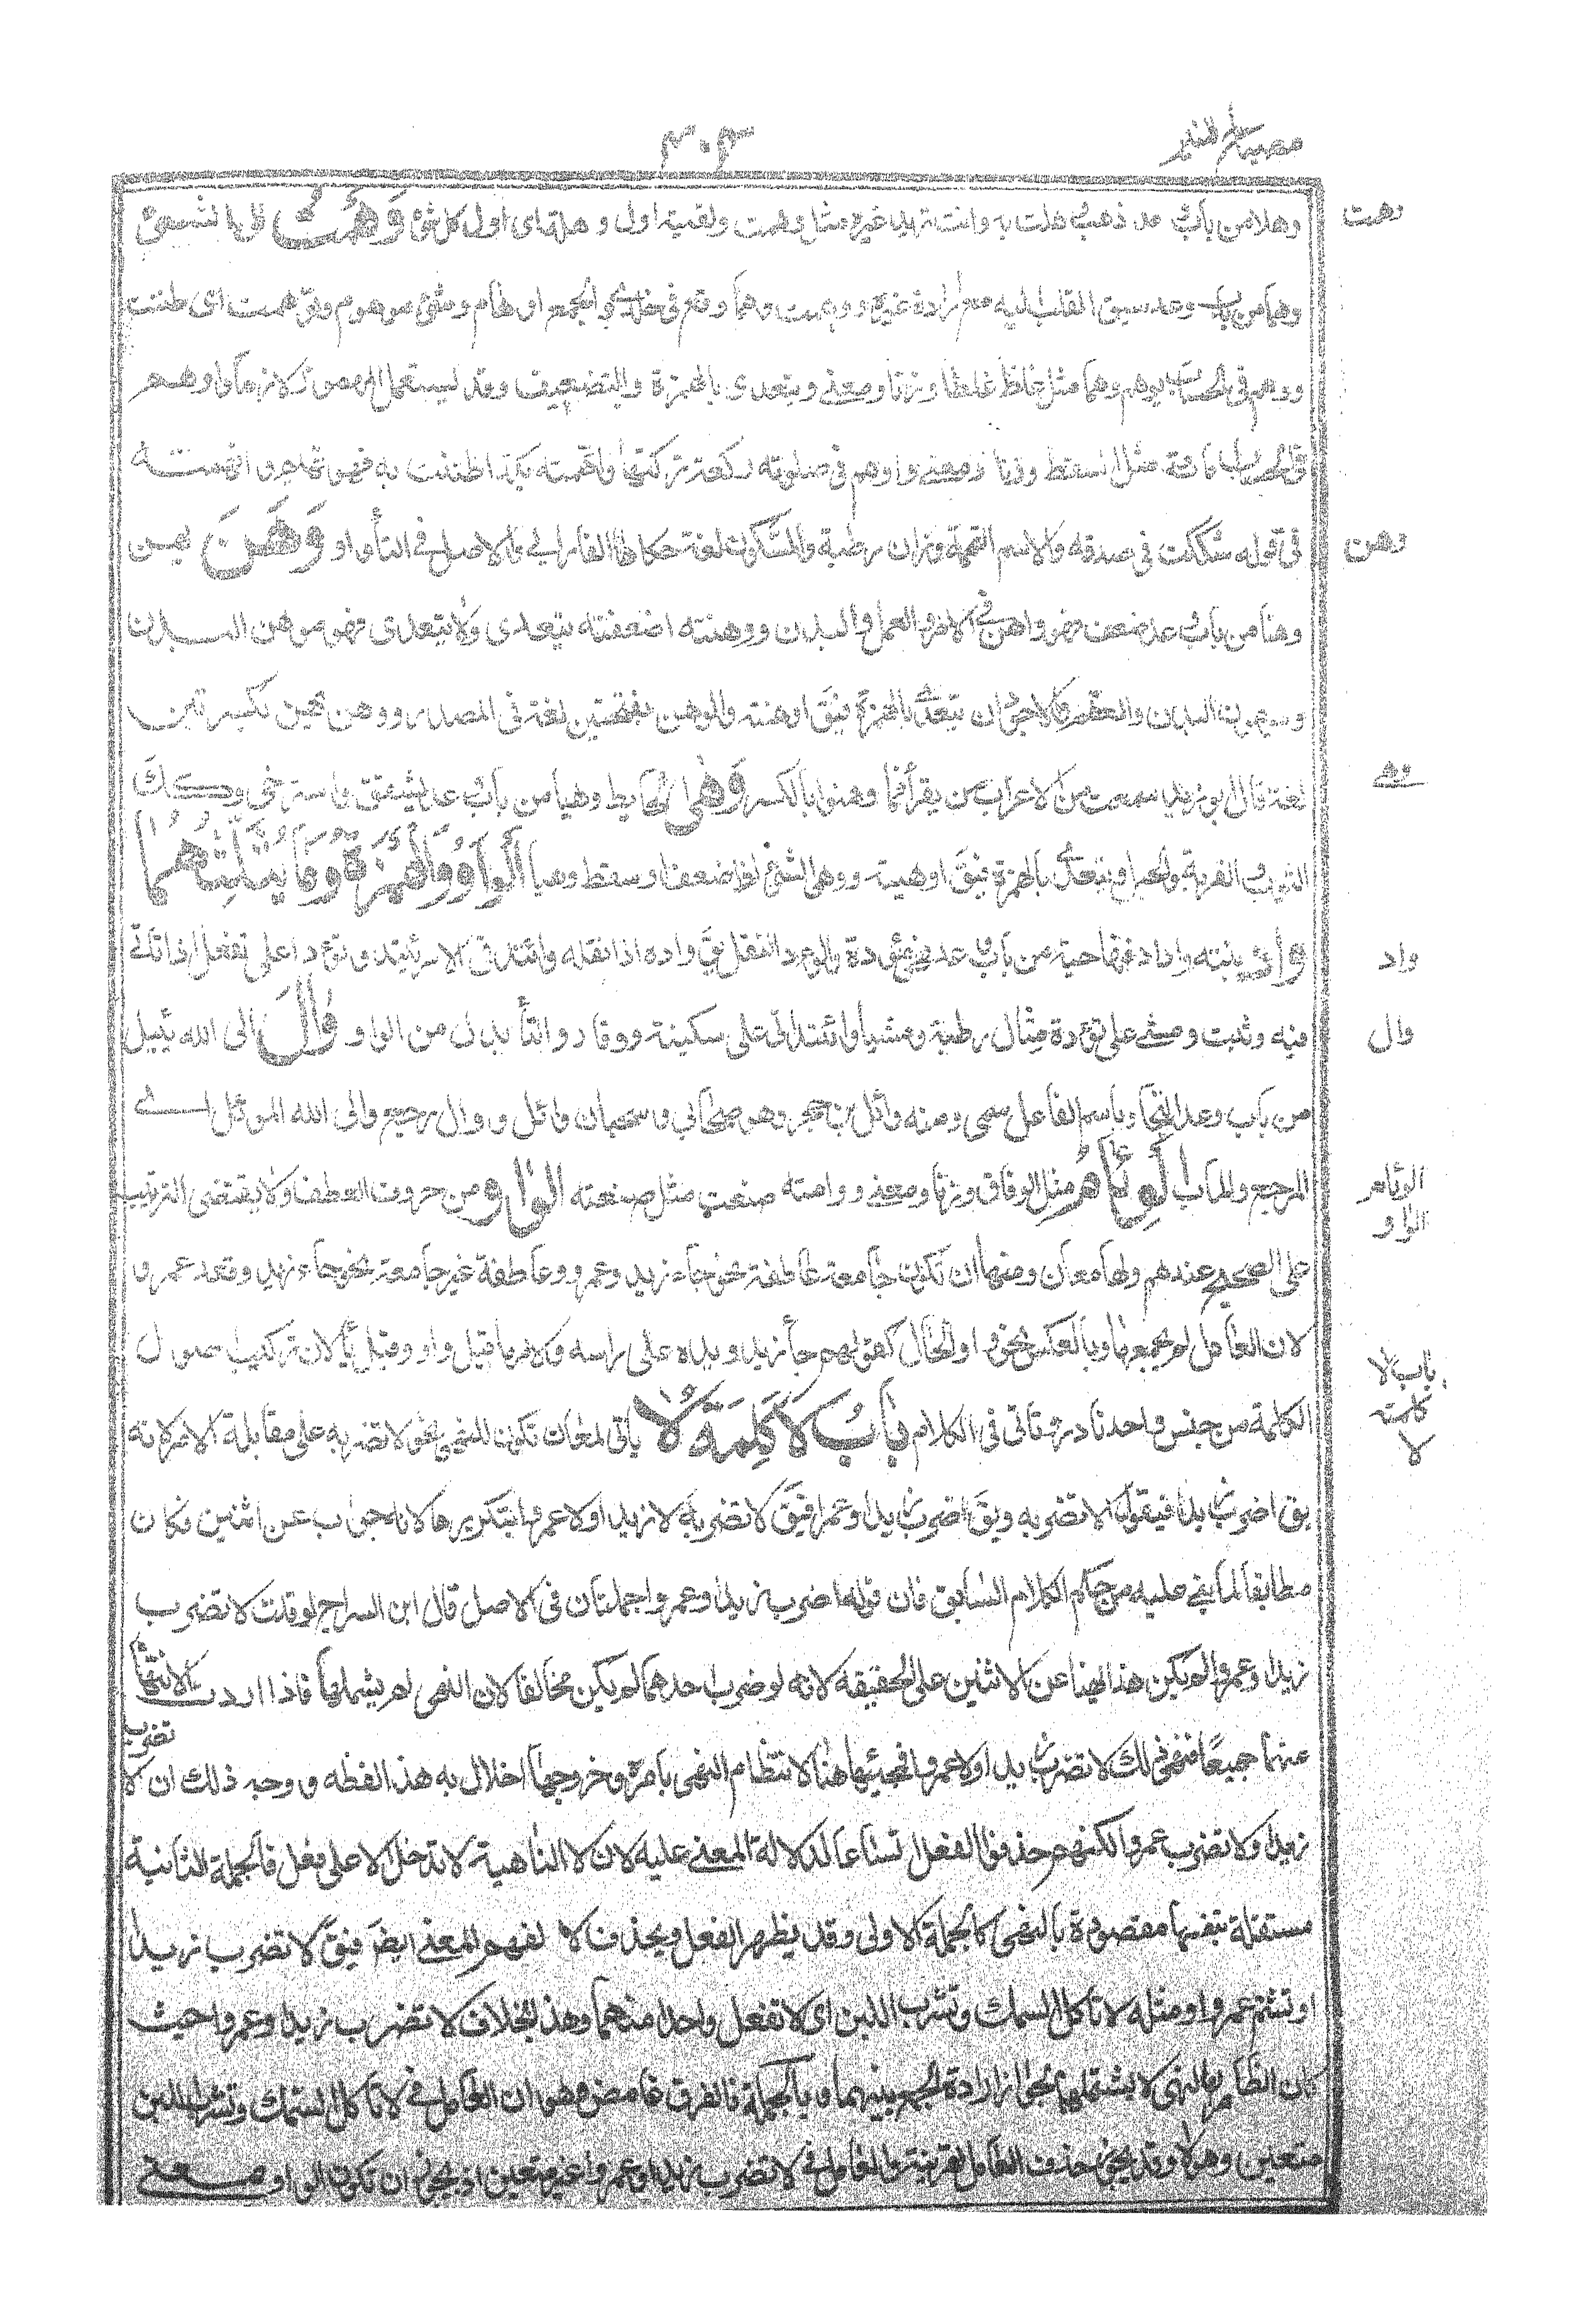 مصباح المنير
٣٠٣
وهلا من باب وعد ذهب وهلت به وانت تريد غيره مثل وهمت ولقيته اول وهلة اى اول كل شئ وَهَمْتُ الى الشئ
وهما من باب وعد سبق القلب اليه مع ارادة غيره ووهمت وهما وقع فى خلدى والجمع اوهام وشئ موهوم وتوهمت اى ظننت
ووهم فى الحساب يوهم وهما مثل غلط غلطا وزنا ومعنى ويتعدى بالهمزة والتضعيف وقد يستعمل المهموز لازما واوهم
من الحساب مائة مثل اسقط وزنا ومعنى واوهم فى صلوته ركعة تركها واتهمته بكذا ظننت به فهو تهيم واتهمته
فى قوله شككت فى صدقه والاسم التهمة وزان رطبة والسكون لغة حكاها الفارابى والاصل فى التاء واو وَهَنَ يهن
وهنا من باب وعد ضعف فهو واهن فى الامر والعمل والبدن ووهنته اضعفته يتعدى ولا يتعدى فهو موهون البدن
والعظم والاجود ان يتعدى بالهمزة فيق اوهنته والوهن بفتحتين لغة فى المصدر ووهن يهن بكسرتين
لغة قال ابو زيد سمعت من الاعراب من يقرأ فما وهنوا بالكسر وَهٰى الحائط وهيا من باب وعد انشقق واسترخى وكذلك
الثوب والقربة والحبل ويتعدى بالهمزة فيق اوهيته ووهى الشئ اذا ضعف او سقط وهيا اَلْوَاوُ وَالْهَمْزَةُ وَمَا يُثَلِّثُهُمَا
وأد بنته وادا دفنها حية من باب وعد فهى موؤدة والوءد الثقل يق واده اذا اثقله واتئد فى الامر يتئد وتوءد اذا تأنى
فيه وتثبت ومشى على تؤدة مثال رطبة ومشيا وئيدا اى على سكينة ووقار والتاء بدل من الواو وَأَلَ الى الله يئيل
من باب وعد التجا وباسم الفاعل سمى ومنه وائل بن حجر وهو صحابى وسحبان وائل ووأل رجع والى الله الموئل اى
المرجع والمآب اَلْوِئَامُ مثل الوفاق وزنا ومعنى ووأمته صنعت مثل صنعته الوَاو من حروف العطف ولا يقتضى الترتيب
على الصحيح عندهم ولها معان ومنها ان تكون جامعة عاطفة نحو جاء زيد وعمرو وعاطفة غير جامعة نحو جاء زيد وقعد عمرو
لان العامل لم يجمعهما وبالعكس نحو واو الحال كقولهم جاء زيد ويده على راسه ولامها قيل واو وقيل ياء لان تركيب اصول
الكلمة من جنس واحد نادر تاتى فى الكلام بَابُ لَا كَلِمَةُ لَا ياتى لمعان تكون للنهى نحو لا تضربه على مقابلة الامر لانه
يق اضرب زيدا فيقول لا تضربه ويق اضرب زيدا وعمرا فيق لا تضرب لا زيدا ولا عمرا بتكريرها لانه جواب عن اثنين فكان
مطابقا لما بنى عليه من حكم الكلام السابق فان قوله اضرب زيدا وعمروا جملتان فى الاصل قال ابن السراج لو قلت لا تضرب
زيدا وعمروا لم يكن هذا نهيا عن الاثنين على الحقيقه لانه لو ضرب احدهما لم يكن مخالفا لان النهى لم يشملهما فاذا اردت الانتهاء
عنهما جميعا فنفى ذلك لا تضرب زيدا ولا عمروا فمجيئها هنا لانتظام النهى باسره وخروجها اخلال به هذا لفظه ووجه ذلك ان لا تضرب
زيدا ولا تضرب عمروا لكنهم حذفوا الفعل اتساعا لدلالة المعنى عليه لان لا الناهية لا تدخل الا على فعل فالجملة الثانية
مستقلة بنفسها مقصودة بالنهى كالجملة الاولى وقد يظهر الفعل ويحذف لا لفهم المعنى ايض فيق لا تضرب زيدا
او تشتم عمروا ومثله لا تاكل السمك وتشرب اللبن اى لا تفعل واحدا منهما وهذا بخلاف لا تضرب زيدا وعمروا حيث
كان الظاهر ان النهى لا يشملهما لجواز ارادة الجمع بينهما وبالجملة فالفرق غامض وهو ان العامل فى لا تاكل السمك وتشرب اللبن
متعين وهو لا وقد يجوز حذف العامل لقرينة والعامل فى لا تضرب زيدا وعمروا غير متعين اذ يجوز ان تكون الواو بمعنى
وهت
وهن
وهى
واد
وال
الوئام
الواو
باب لا
كلمة
لا